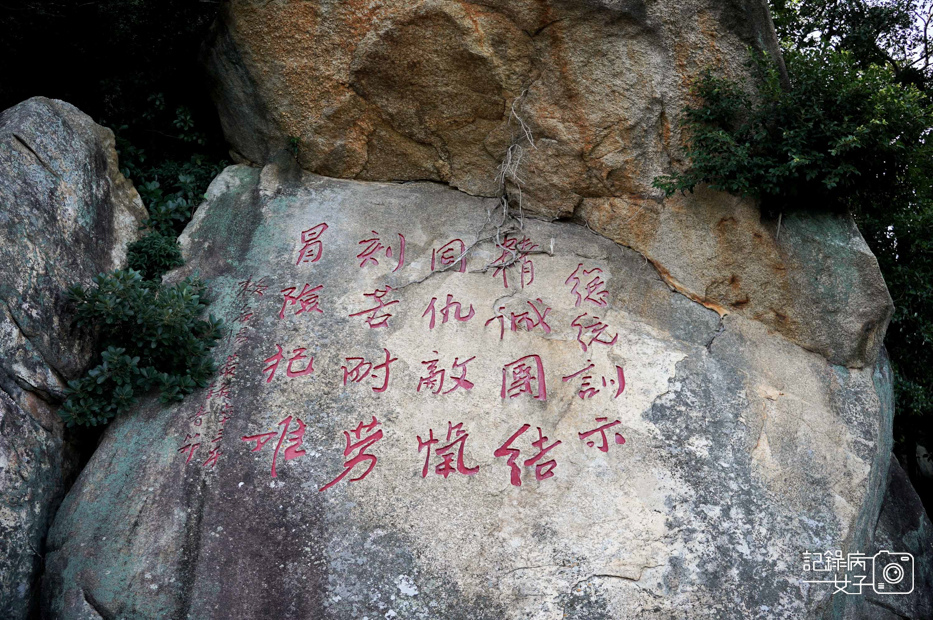 總統訓示
精誠團結
同仇敵愾
刻苦耐勞
冒險犯難
記錄病
女子